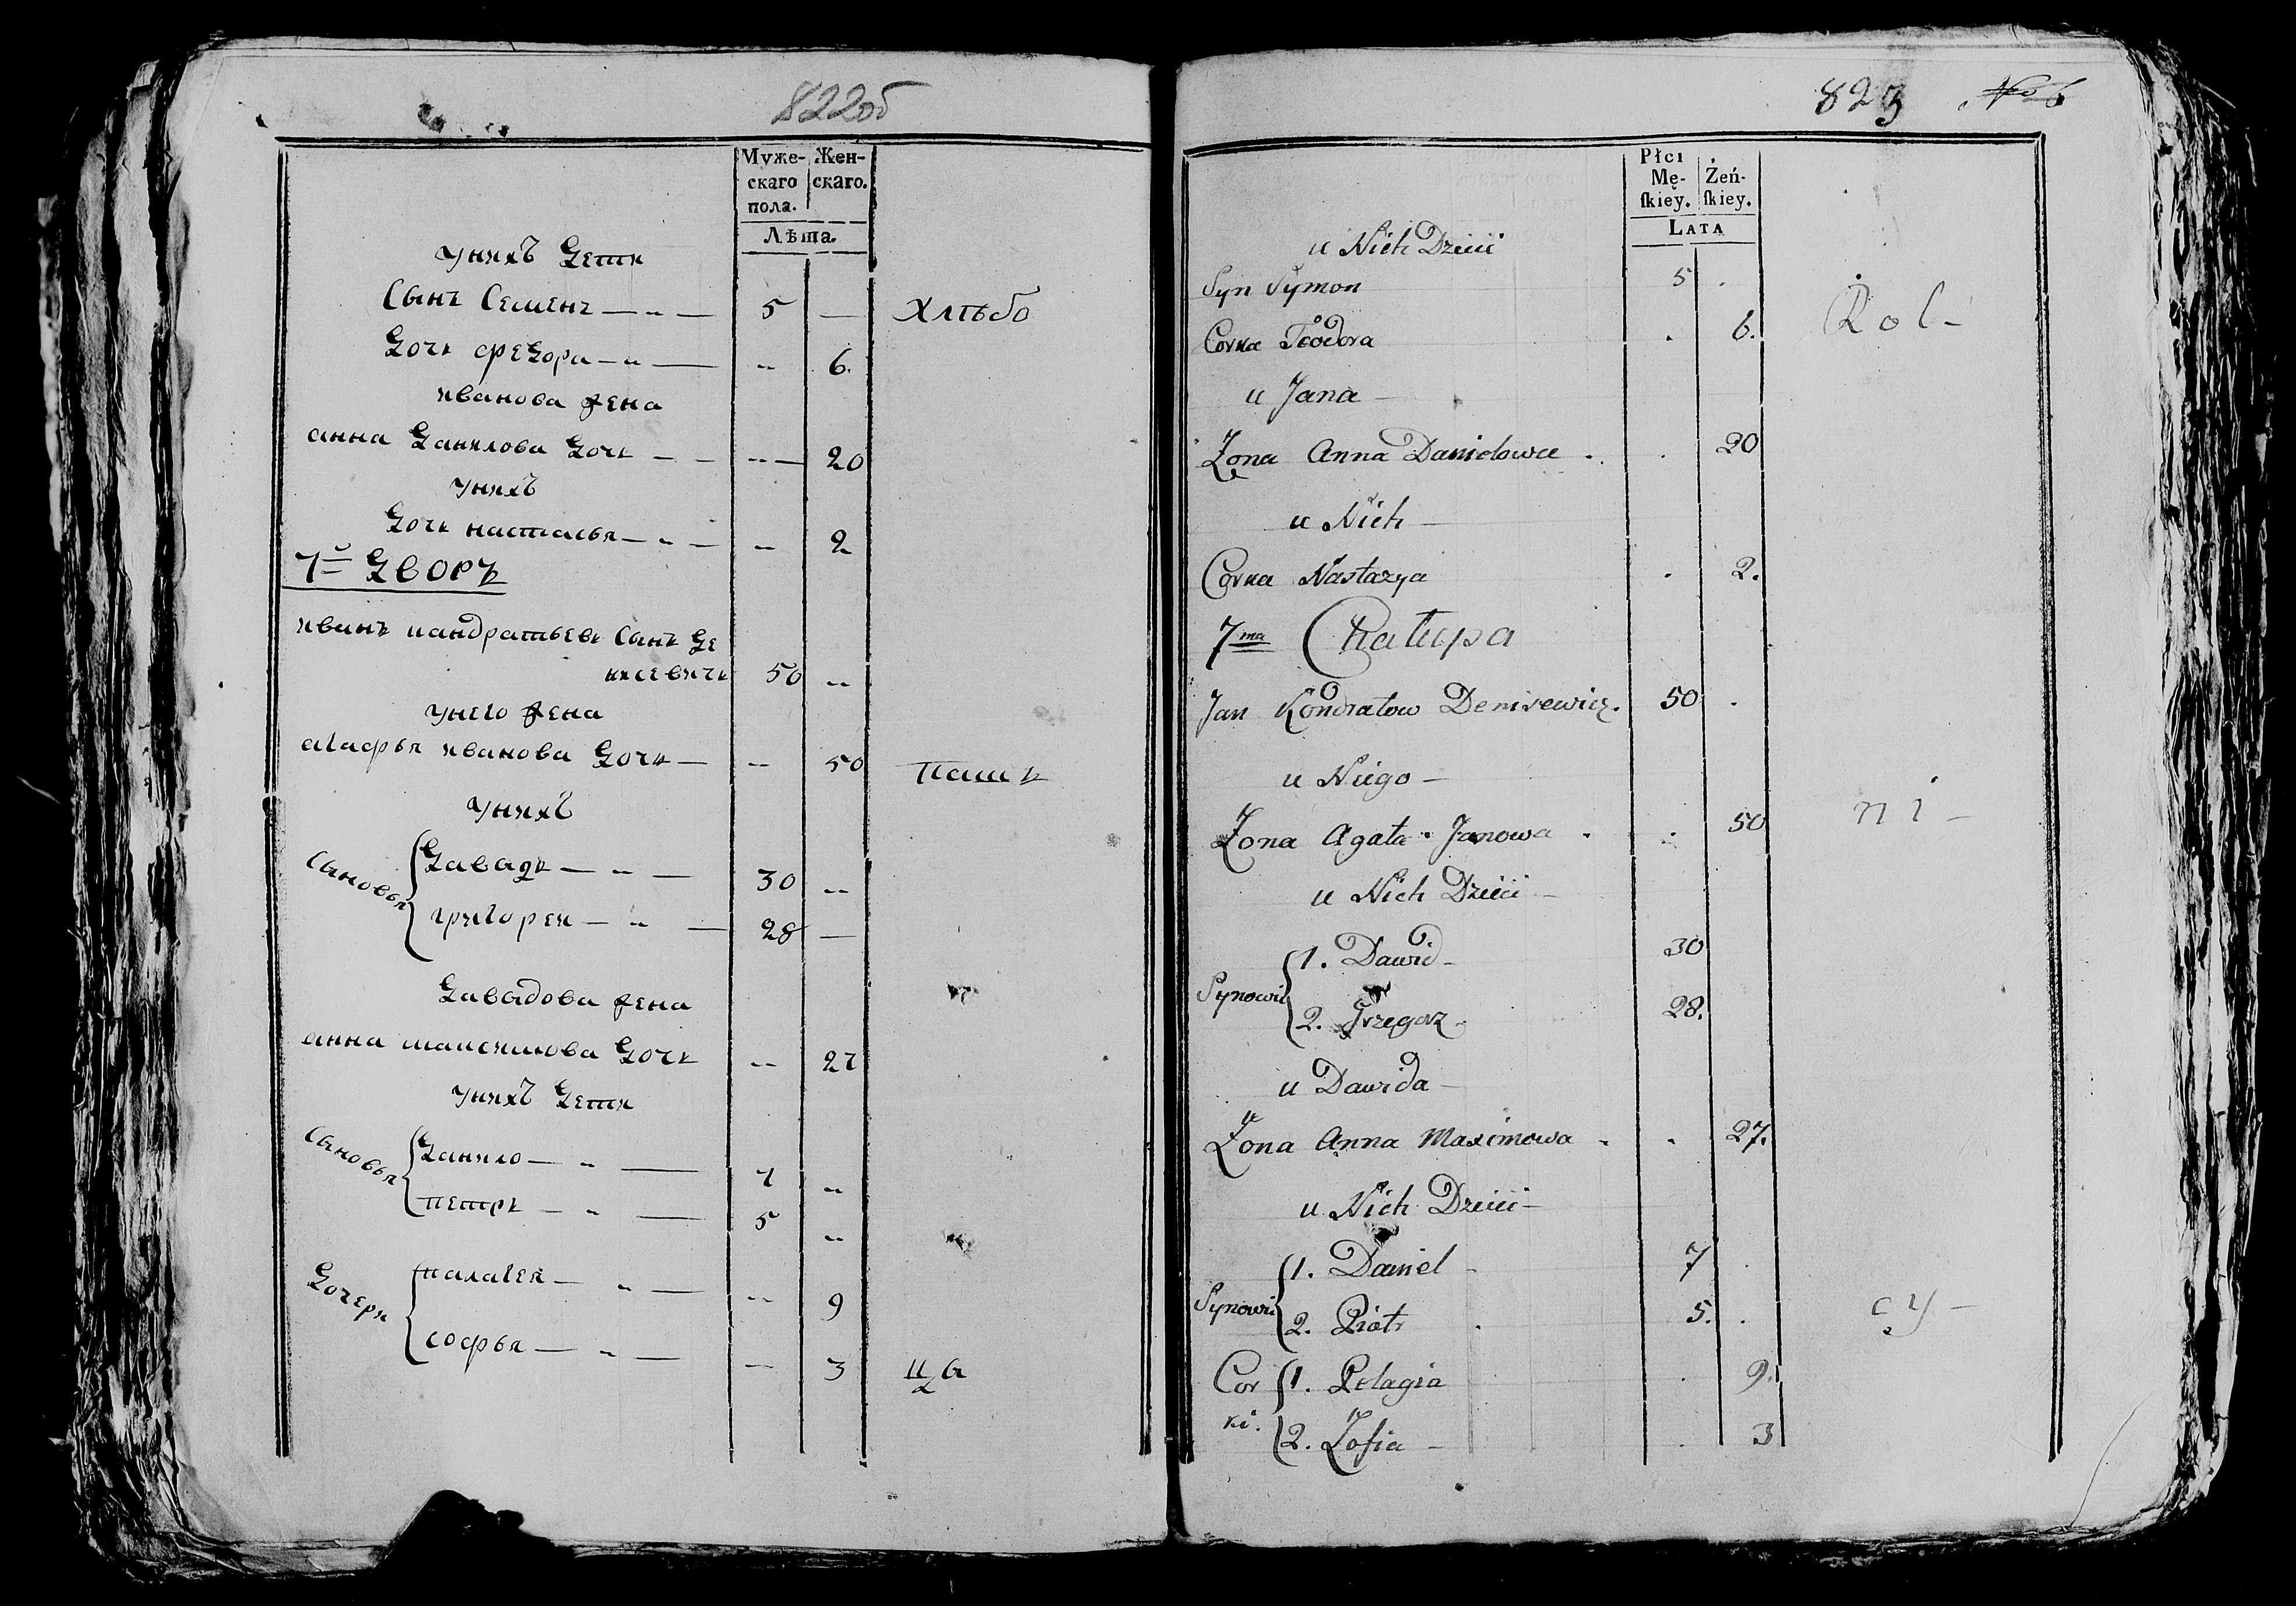 822об
Муже- Жен-
скаго скаго.
пола.
Лѣта.
унихъ дети
Сынъ Семенъ — „ — 5 —
Хлѣбо
дочь федора — „ — „ 6.
иванова жена
анна данилова дочь — — „ — 20
унихъ
дочь настасья — „ — „ 2
7й дворъ
иванъ кандратьевъ Сынъ де
нисевичъ 50 „
унего жена
агафья иванова дочь — „ 50
пашъ
унихъ
Сыновья
давадъ — „ — 30 „
григорей — „ — 28 —
давадова жена
анна максимова дочь „ 27
унихъ дети
Сыновья
данило — „ — 7 „
петръ — „ — 5 „
дочери
палагея — „ — „ 9
софья — „ — „ 3
ца
823 No 6
Płci
Mę- Żeń-
ſkiey. ſkiey.
LATA
u Nich Dzieci
Syn Symon 5 .
Rol-
Corka Teodora . 6.
u Jana —
Zona Anna Danielowa . . 20
u Nich —
Corka Nastazya . 2.
7ma Chałupa
Jan Kondratow Denisewicz. 50 .
u Niego —
Zona Agata Janowa . . 50
ni-
u Nich Dzieci —
Synowie
1. Dawid - 30
2. Grzegorz. 28.
u Dawida —
Zona Anna Maximowa . . 27.
u Nich Dzieci —
Synowie
1. Daniel - 7 .
2. Piotr . 5. .
cy-
Cor
ki.
1. Pelagia . 9.
2. Zofia — . 3